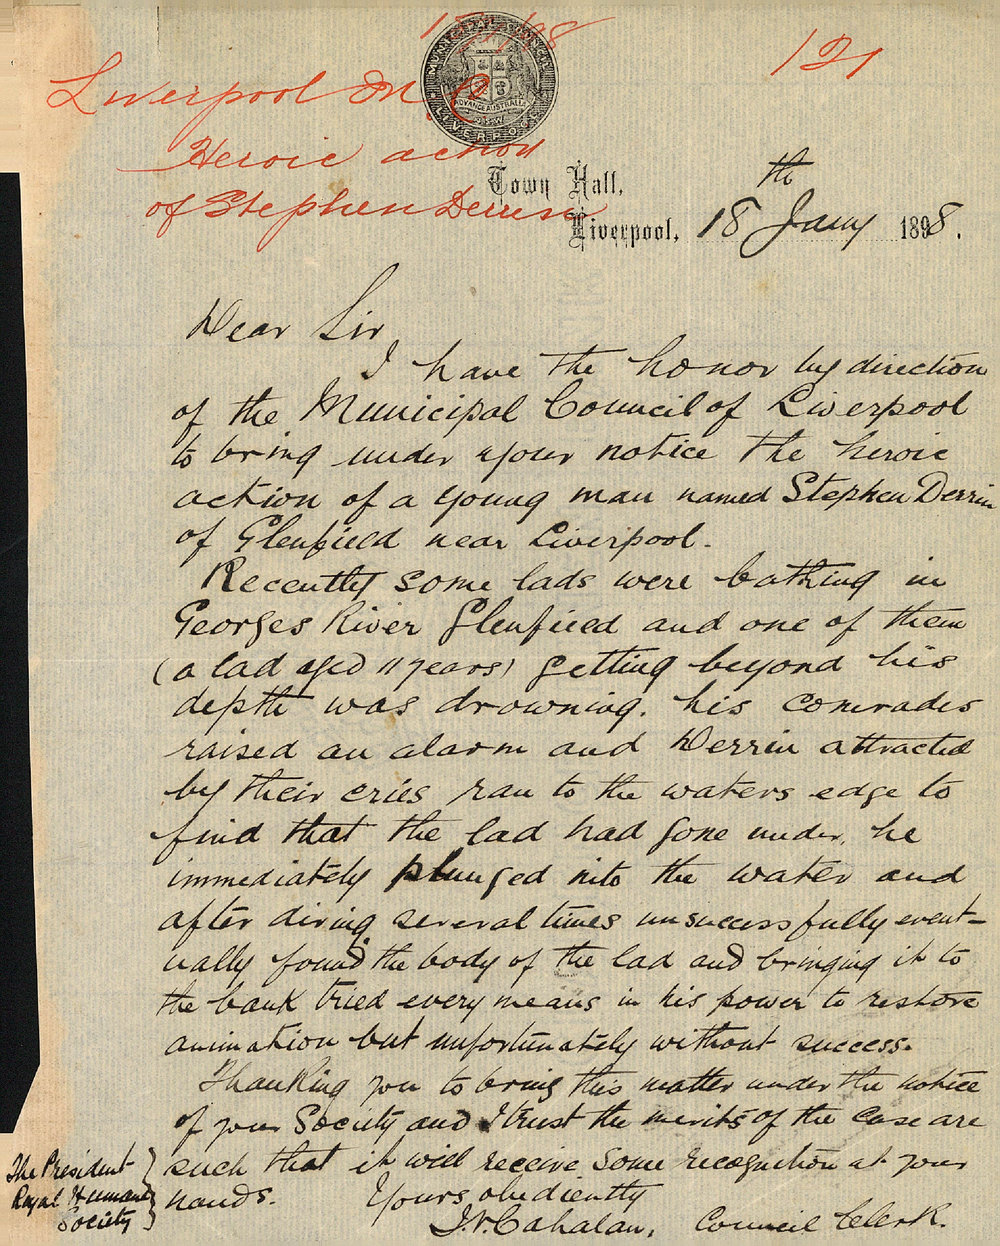 15/1/98
121
MUNICIPAL COUNCIL
ADVANCE AUSTRALIA
N.S.W
LIVERPOOL
Liverpool M.C.
Heroic action
of Stephen Derrin
Town Hall,
Liverpool, 18th Jany 1898.
Dear Sir
I have the honor by direction
of the Municipal Council of Liverpool
to bring under your notice the heroic
action of a young man named Stephen Derrin
of Glenfield near Liverpool.
Recently some lads were bathing in
Georges River Glenfield and one of them
(a lad aged 11 years) getting beyond his
depth was drowning. his comrades
raised an alarm and Derrin attracted
by their cries ran to the waters edge to
find that the lad had gone under, he
immediately plunged into the water and
after diving several times unsuccessfully event-
ually found the body of the lad and bringing it to
the bank tried every means in his power to restore
animation but unfortunately without success.
Thanking you to bring this matter under the notice
of your Society and I trust the merits of the case are
such that it will receive some recognition at your
hands.
Yours obediently
Cahalan, Council Clerk.
The President
Royal Humane
Society